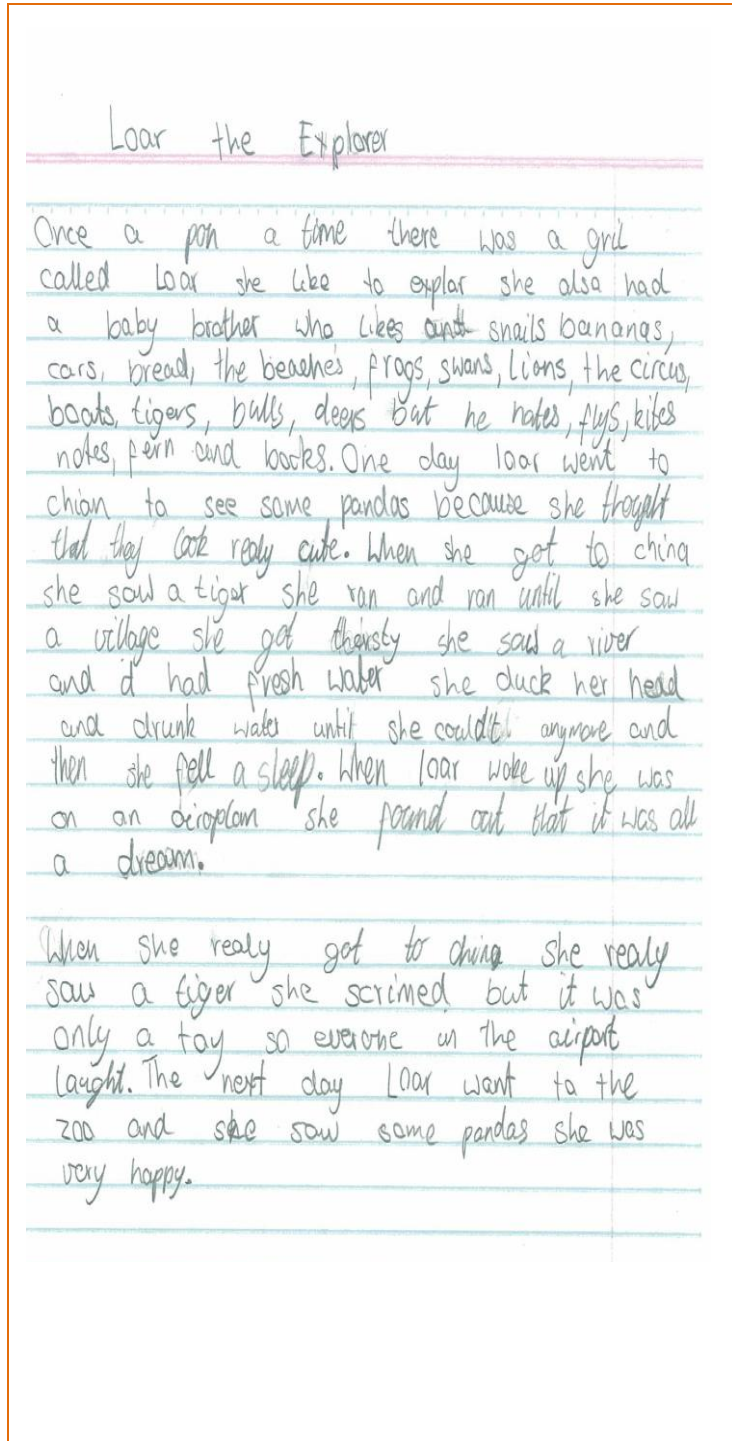 Loar the Explorer
Once a pon a time there was a gril
called Loar she like to explar she alsa had
a baby brother who likes snails bananas,
cars, bread, the beaches, frogs, swans, lions, the circus,
boats, tigers, bulls, deers but he hates, flys, kites
notes, fern and books. One day loar went to
chian to see same pandas because she thoght
that they look realy cute. When she got to china
she saw a tigar she ran and ran until she saw
a village she got thersty she saw a river
and it had fresh water she duck her head
and drunk water until she could't anymore and
then she fell a sleep. When loar woke up she was
on an airoplam she found out that it was all
a dream.
When she realy got to china she realy
saw a tiger she scrimed but it was
only a tay so everone in the airport
laught. The next day Loar want to the
zoo and she saw same pandas she was
very happy.